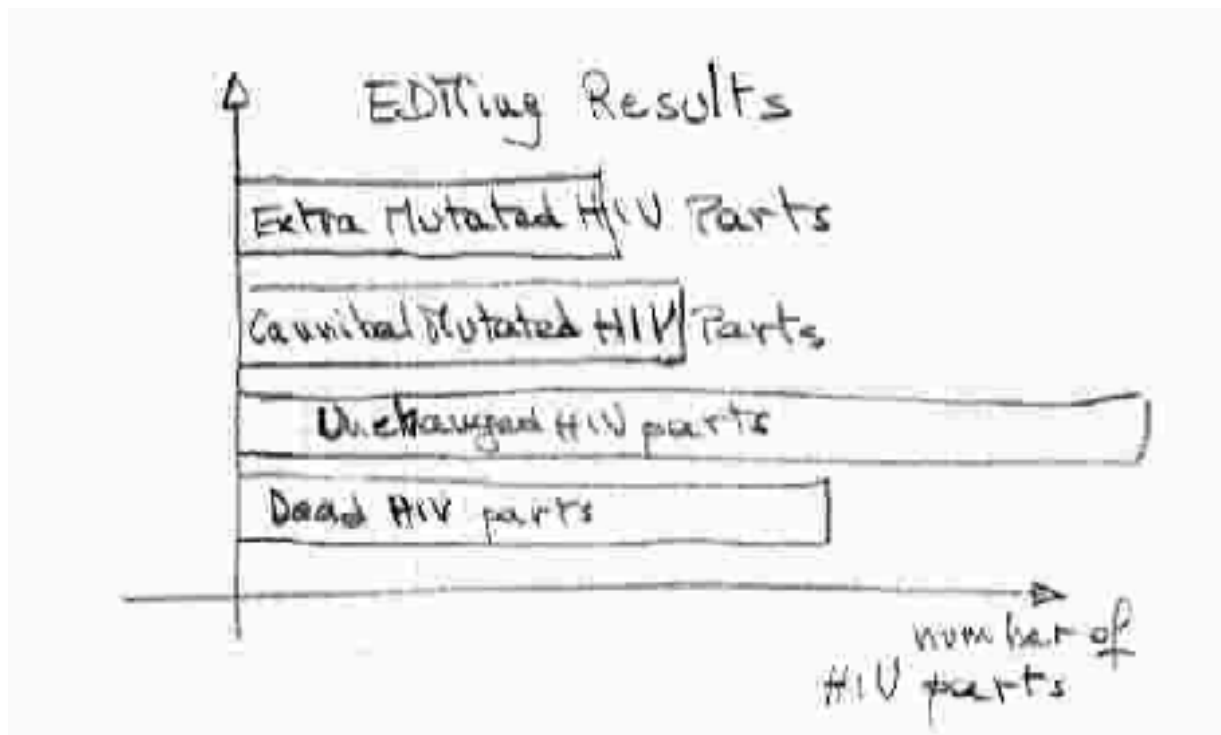 EDiTing Results
Extra Mutated HIV Parts
Cannibal Mutated HIV Parts
Unchanged HIV parts
Dead HIV parts
number of
HIV parts